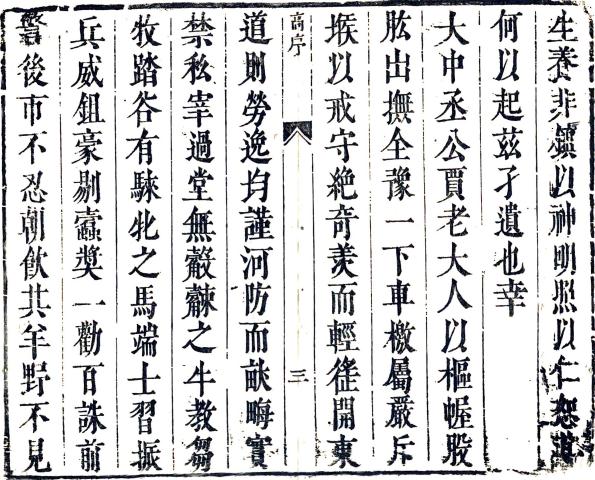 生養非鎮以神明照以仁恕
何以起茲孑遺也幸
大中丞公賈老大人以樞幄股
肱出撫全豫一下車檄屬嚴斥
堠以戒守絶奇羨而輕徭開東
高序
三
道則勞逸均謹河防而畎畮實
禁私宰過堂無觳觫之牛教芻
牧踏谷有騋牝之馬端士習振
兵威鉏豪剔蠹奬一勸百誅前
警後市不忍朝飲其羊野不見